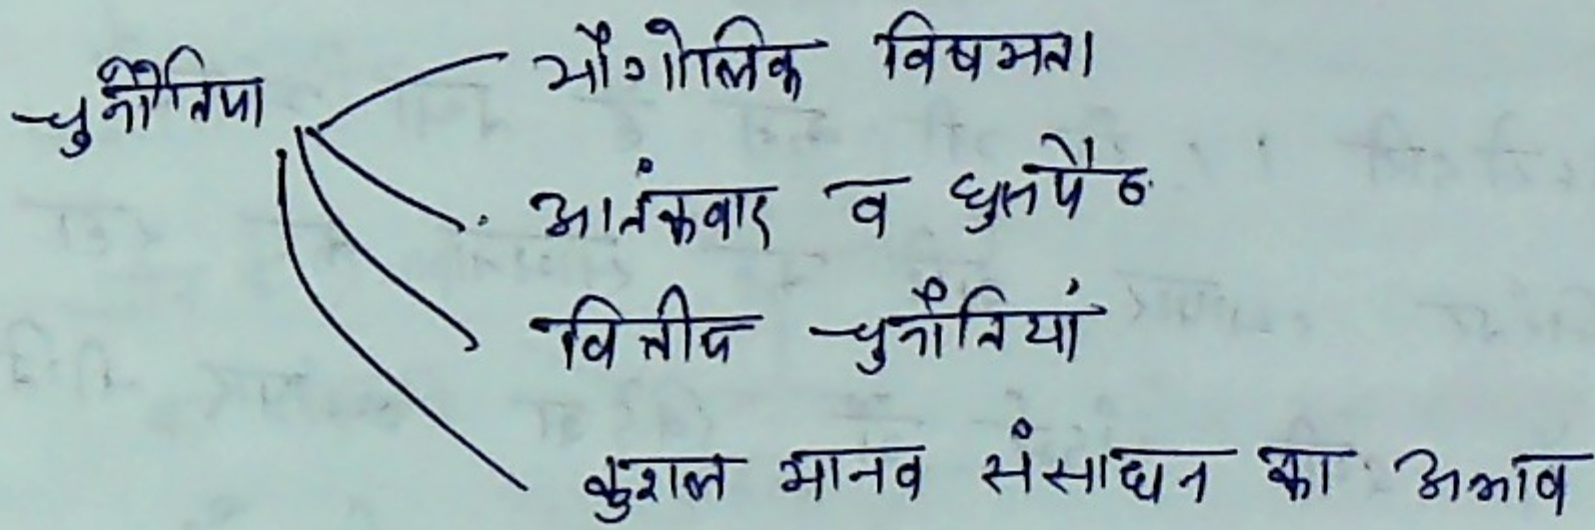 चुनौतिया
भौगोलिक विषमता
आतंकवाद व घुसपैठ
वित्तीय चुनौतियां
कुशल मानव संसाधन का अभाव